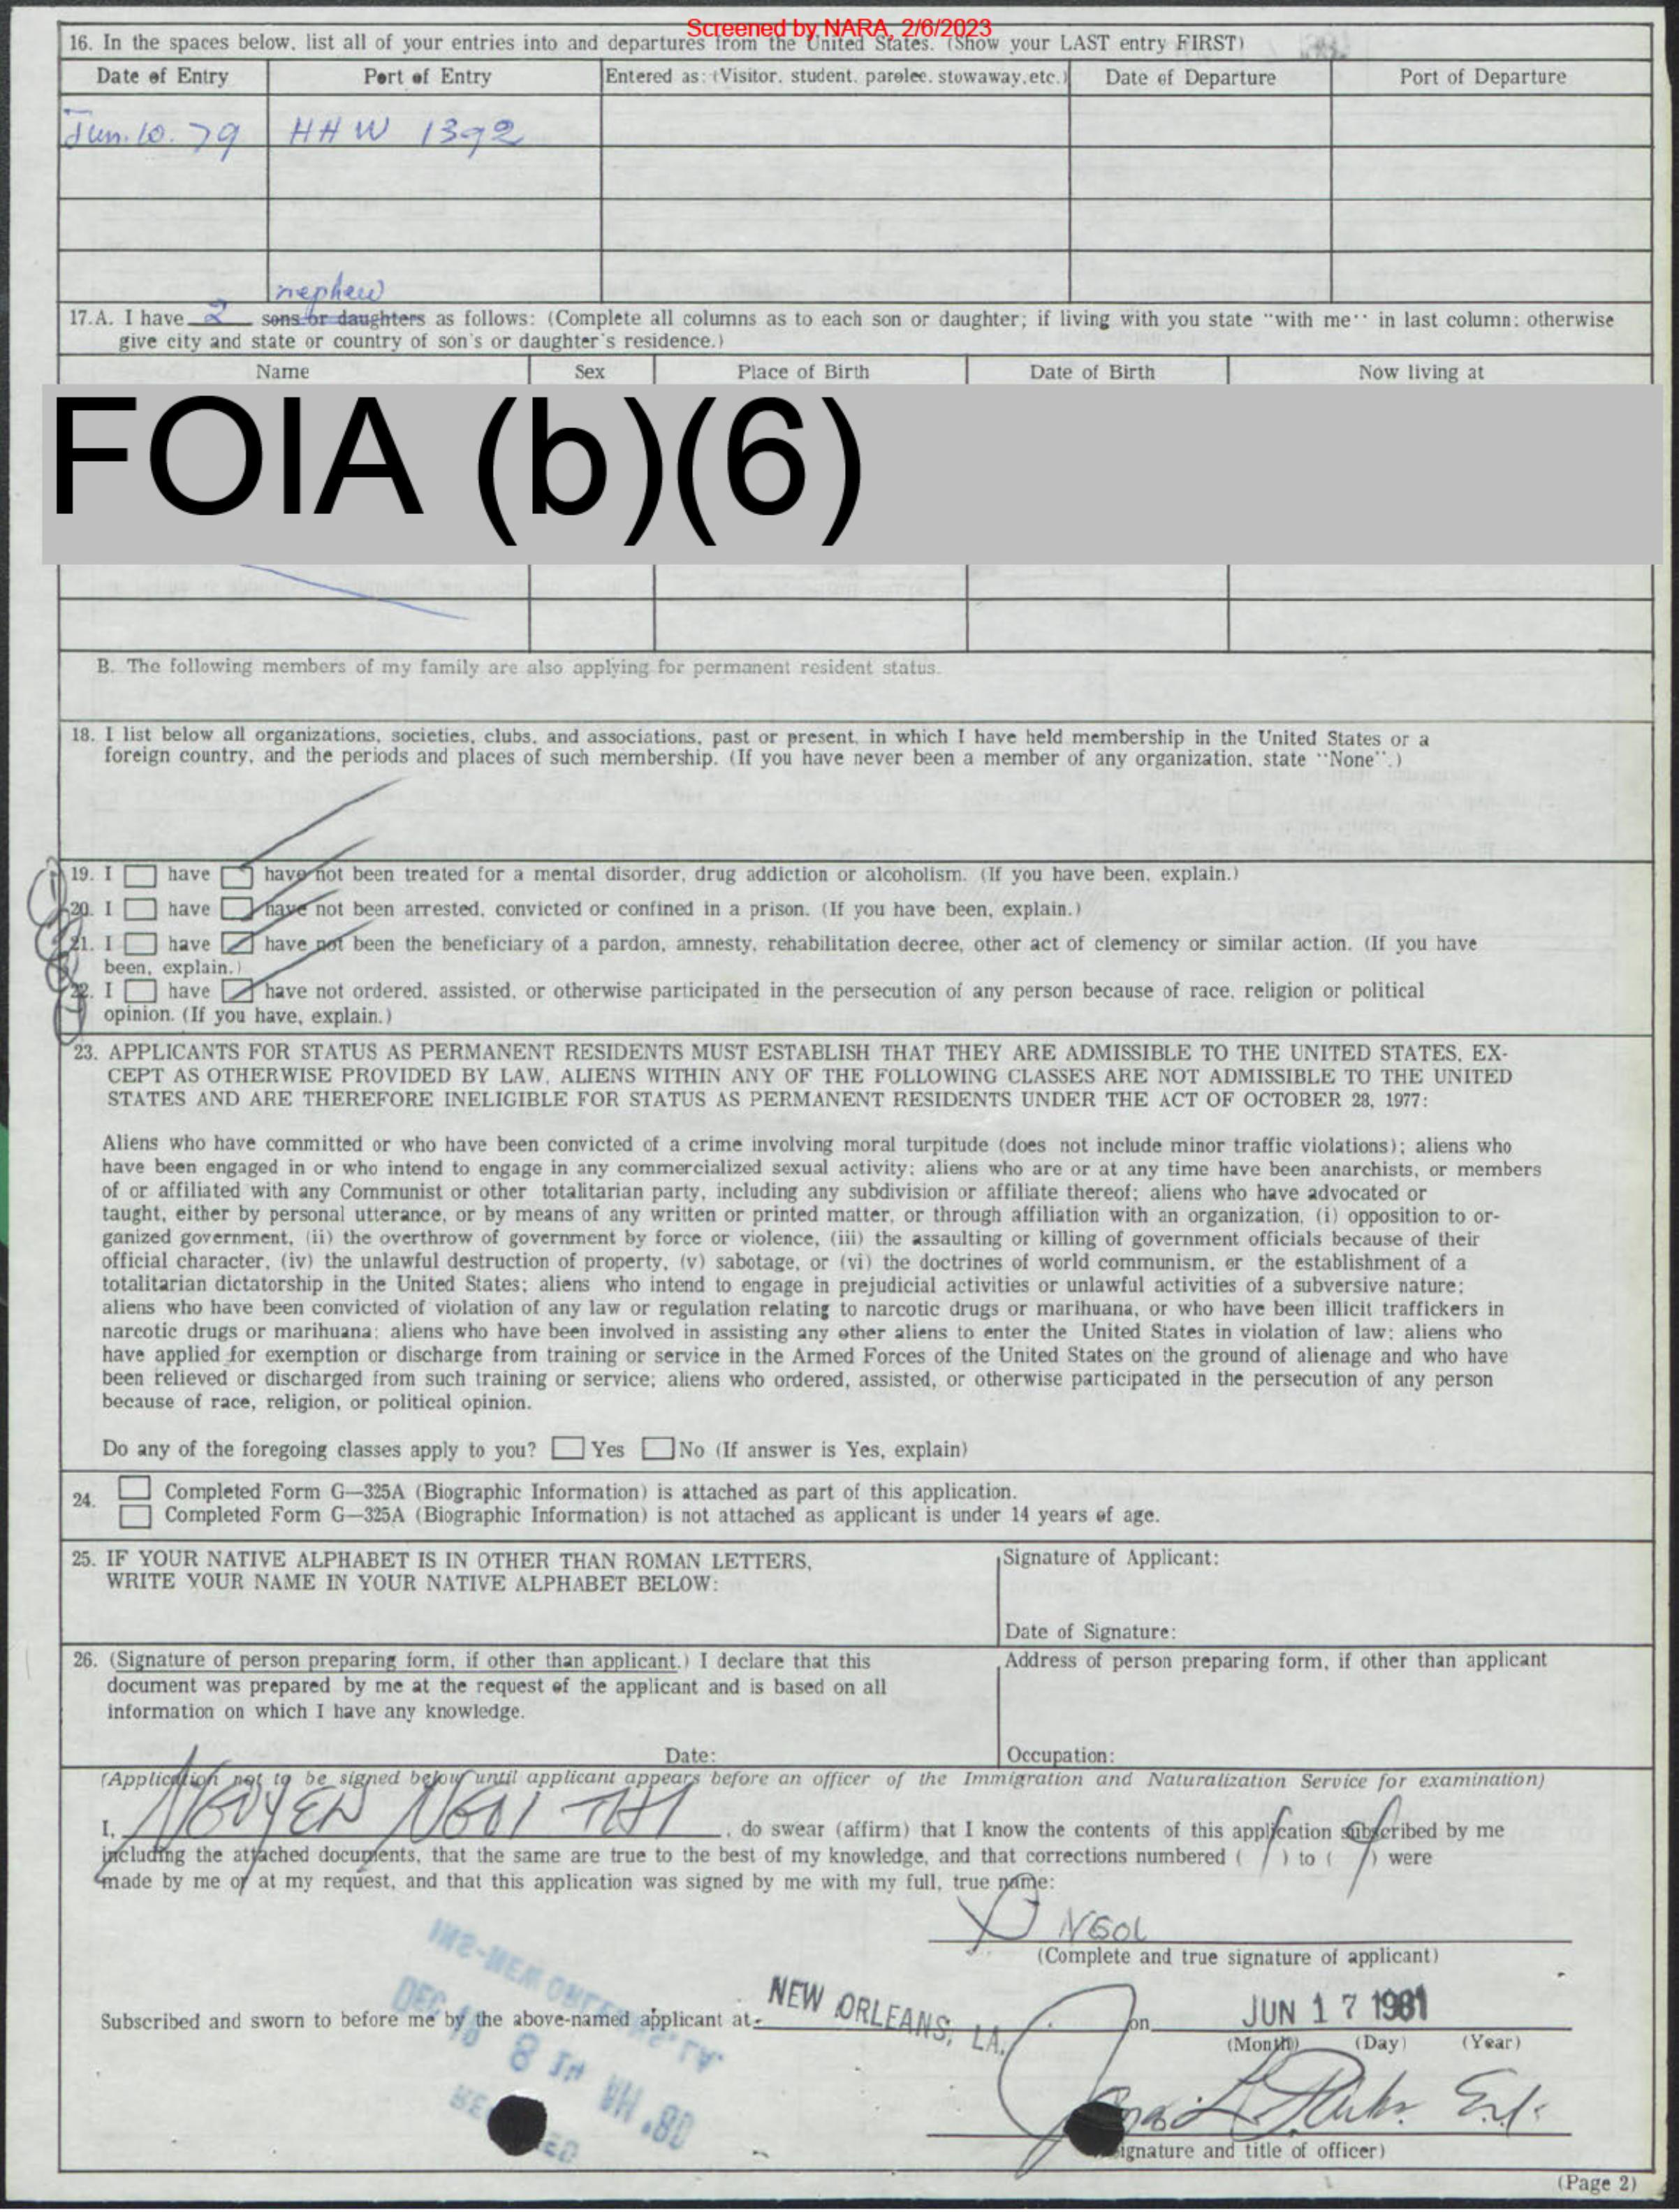 Screened by NARA, 2/6/2023
16. In the spaces below, list all of your entries into and departures from the United States. (Show your LAST entry FIRST)
Date of Entry Port of Entry Entered as: (Visitor, student, parolee, stowaway, etc.) Date of Departure Port of Departure
Jun. 10. 79 HHW 1392
nephew
17.A. I have 2 sons or daughters as follows: (Complete all columns as to each son or daughter; if living with you state "with me'' in last column; otherwise
give city and state or country of son's or daughter's residence.)
Name Sex Place of Birth Date of Birth Now living at
FOIA (b)(6)
B. The following members of my family are also applying for permanent resident status.
18. I list below all organizations, societies, clubs, and associations, past or present, in which I have held membership in the United States or a
foreign country, and the periods and places of such membership. (If you have never been a member of any organization, state ''None''.)
19. I have have not been treated for a mental disorder, drug addiction or alcoholism. (If you have been, explain.)
20. I have have not been arrested, convicted or confined in a prison. (If you have been, explain.)
21. I have have not been the beneficiary of a pardon, amnesty, rehabilitation decree, other act of clemency or similar action. (If you have
been, explain.)
22. I have have not ordered, assisted, or otherwise participated in the persecution of any person because of race, religion or political
opinion. (If you have, explain.)
23. APPLICANTS FOR STATUS AS PERMANENT RESIDENTS MUST ESTABLISH THAT THEY ARE ADMISSIBLE TO THE UNITED STATES. EX-
CEPT AS OTHERWISE PROVIDED BY LAW, ALIENS WITHIN ANY OF THE FOLLOWING CLASSES ARE NOT ADMISSIBLE TO THE UNITED
STATES AND ARE THEREFORE INELIGIBLE FOR STATUS AS PERMANENT RESIDENTS UNDER THE ACT OF OCTOBER 28, 1977:
Aliens who have committed or who have been convicted of a crime involving moral turpitude (does not include minor traffic violations); aliens who
have been engaged in or who intend to engage in any commercialized sexual activity; aliens who are or at any time have been anarchists, or members
of or affiliated with any Communist or other totalitarian party, including any subdivision or affiliate thereof; aliens who have advocated or
taught, either by personal utterance, or by means of any written or printed matter, or through affiliation with an organization, (i) opposition to or-
ganized government, (ii) the overthrow of government by force or violence, (iii) the assaulting or killing of government officials because of their
official character, (iv) the unlawful destruction of property, (v) sabotage, or (vi) the doctrines of world communism, or the establishment of a
totalitarian dictatorship in the United States; aliens who intend to engage in prejudicial activities or unlawful activities of a subversive nature;
aliens who have been convicted of violation of any law or regulation relating to narcotic drugs or marihuana, or who have been illicit traffickers in
narcotic drugs or marihuana; aliens who have been involved in assisting any other aliens to enter the United States in violation of law; aliens who
have applied for exemption or discharge from training or service in the Armed Forces of the United States on the ground of alienage and who have
been relieved or discharged from such training or service; aliens who ordered, assisted, or otherwise participated in the persecution of any person
because of race, religion, or political opinion.
Do any of the foregoing classes apply to you? Yes No (If answer is Yes, explain)
24. Completed Form G—325A (Biographic Information) is attached as part of this application.
Completed Form G—325A (Biographic Information) is not attached as applicant is under 14 years of age.
25. IF YOUR NATIVE ALPHABET IS IN OTHER THAN ROMAN LETTERS, Signature of Applicant:
WRITE YOUR NAME IN YOUR NATIVE ALPHABET BELOW:
Date of Signature:
26. (Signature of person preparing form, if other than applicant.) I declare that this Address of person preparing form, if other than applicant
document was prepared by me at the request of the applicant and is based on all
information on which I have any knowledge.
Date: Occupation:
(Application not to be signed below until applicant appears before an officer of the Immigration and Naturalization Service for examination)
I, NGUYEN NGOI THI, do swear (affirm) that I know the contents of this application subscribed by me
including the attached documents, that the same are true to the best of my knowledge, and that corrections numbered ( ) to ( ) were
made by me or at my request, and that this application was signed by me with my full, true name:
X NGOI
(Complete and true signature of applicant)
INS-NEW ORLEANS, LA.
Subscribed and sworn to before me by the above-named applicant at NEW ORLEANS, LA. on JUN 17 1981
(Month) (Day) (Year)
DEC
AM '80
RECEIVED
(Signature and title of officer)
(Page 2)